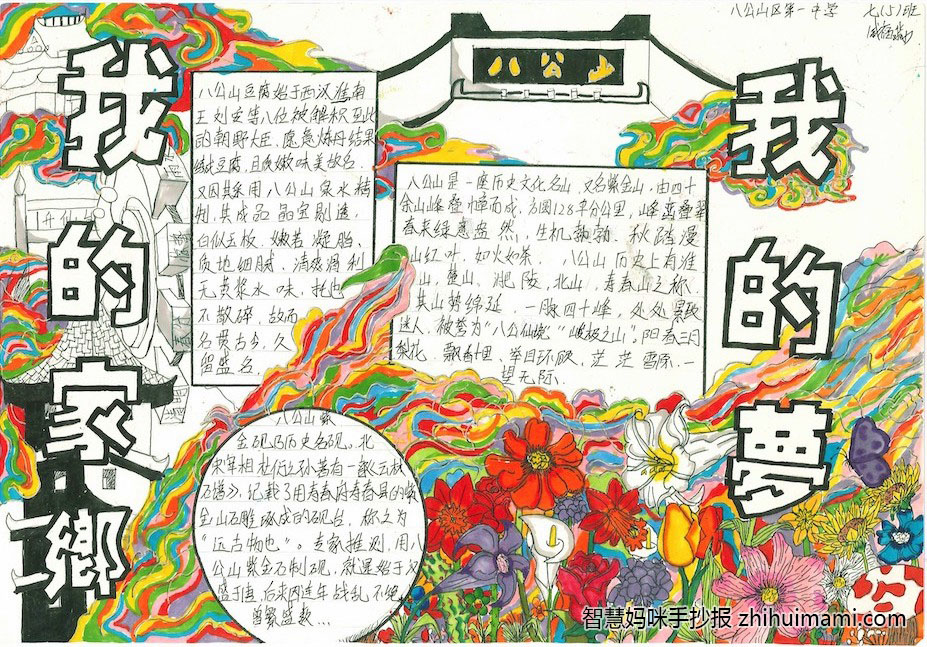 八公山区第一中学
七(5)班
八公山
我的家鄉
我的夢
八公山豆腐始于西汉淮南
王刘安等八位被
的朝野大臣,愿意炼丹结果
豆腐,且质嫩味美故名
又因其采用八公山泉水精
制,其成品晶宝剔透,
白似玉板,嫩若凝脂,
质地细腻,清爽滑利
无黄浆水味,托也
不散碎,故而
名贯古今,久
留盛名
八公山是一座历史文化名山,又名紫金山,由四十
余山峰叠嶂而成,方圆128平方公里,峰峦叠翠
春来绿意盎然,生机勃勃.秋踏漫
山红叶,如火如荼. 八公山历史上有淮
山,楚山,淝陵,北山,寿春山之称.
其山势绵延,一脉四十峰,处处景致
迷人,被誉为“八公仙境”
阳春三月
梨花,飘香十里,举目环顾,茫茫雪原,一
望无际.
八公山紫
金砚乃历史名砚,北
宋年相杜
记载了用寿春府寿春县的紫
金山石雕琢成的砚台,称之为
“远古物也”。专家推测,用八
公山紫金石制砚,就是始于汉
盛于唐,后来因连年战乱不绝